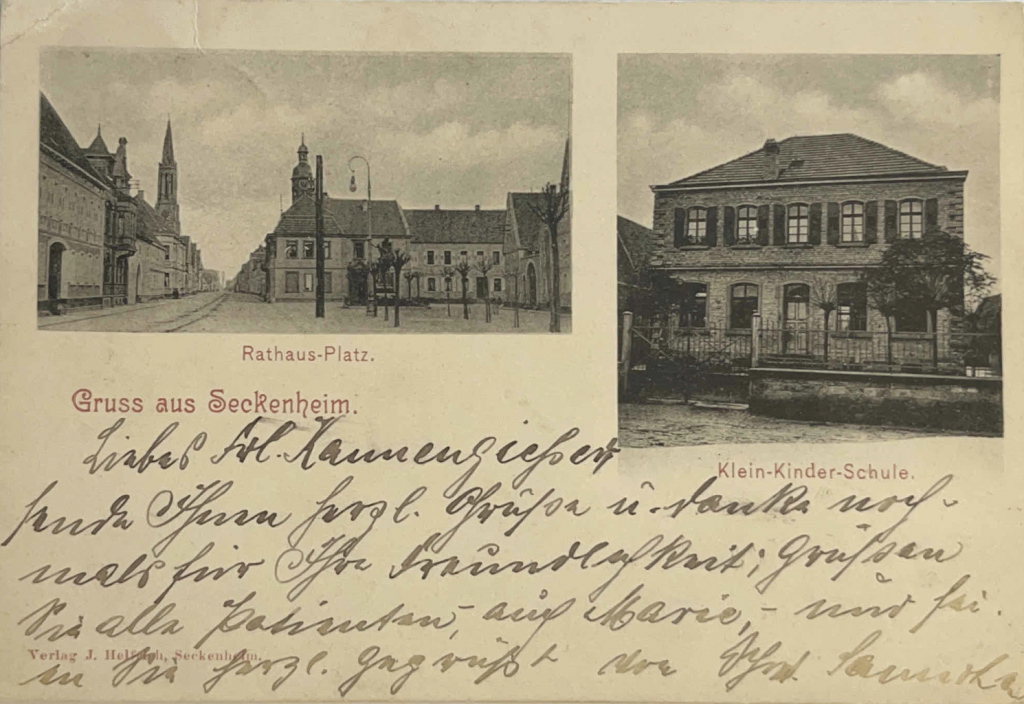 Rathaus-Platz.
Klein-Kinder-Schule.
Gruss aus Seckenheim.
Liebes Frl. Kannengiesser
sende Ihnen herzl. Grüße u. danke noch-
mals für Ihre Freundlichkeit; Grüßen
Sie alle Patienten, auch Marie, - und sei-
en Sie herzl. gegrüßt von Ihrer
Verlag J. Helffrich, Seckenheim.